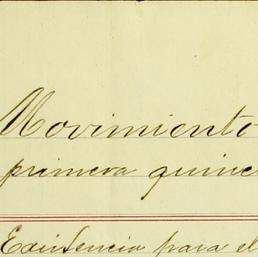 Movimiento
primera quince
Existencia para el